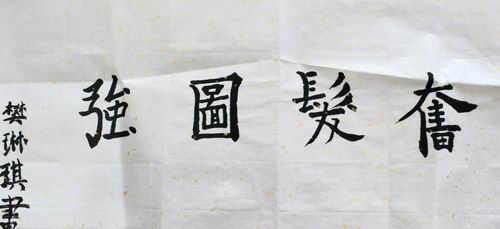 奮髮圖強
樊琳琪書